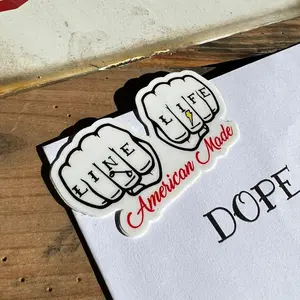 LINE LIFE
American Made
DOPE